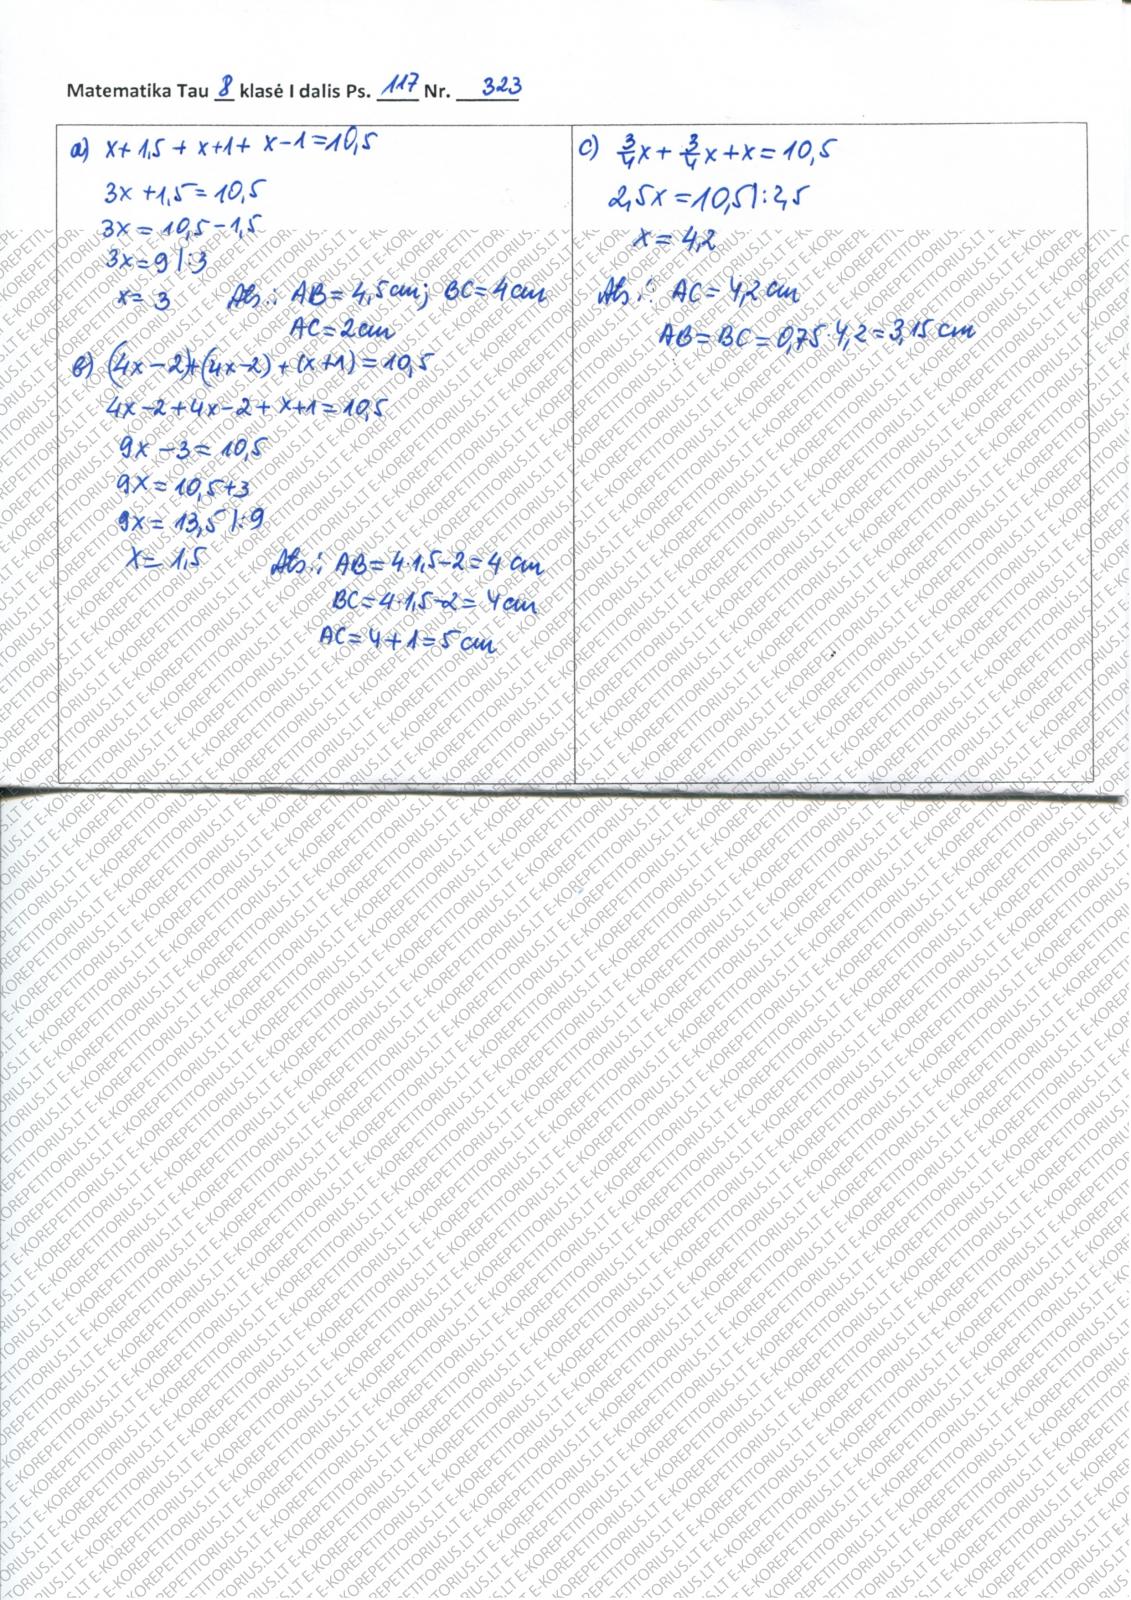 Matematika Tau 8 klasė I dalis Ps. 117 Nr. 323
a) x + 1,5 + x+1 + x-1 = 10,5
3x + 1,5 = 10,5
3x = 10,5 - 1,5
3x = 9 |:3
x = 3 Ats.: AB = 4,5 cm; BC = 4 cm
AC = 2 cm
b) (4x - 2) + (4x - 2) + (x + 1) = 10,5
4x - 2 + 4x - 2 + x + 1 = 10,5
9x - 3 = 10,5
9x = 10,5 + 3
9x = 13,5 |:9
x = 1,5 Ats.: AB = 4·1,5 - 2 = 4 cm
BC = 4·1,5 - 2 = 4 cm
AC = 4 + 1 = 5 cm
c) 3/4x + 3/4x + x = 10,5
2,5x = 10,5 |:2,5
x = 4,2
Ats.: AC = 4,2 cm
AB = BC = 0,75·4,2 = 3,15 cm
E-KOREPETITORIUS.LT